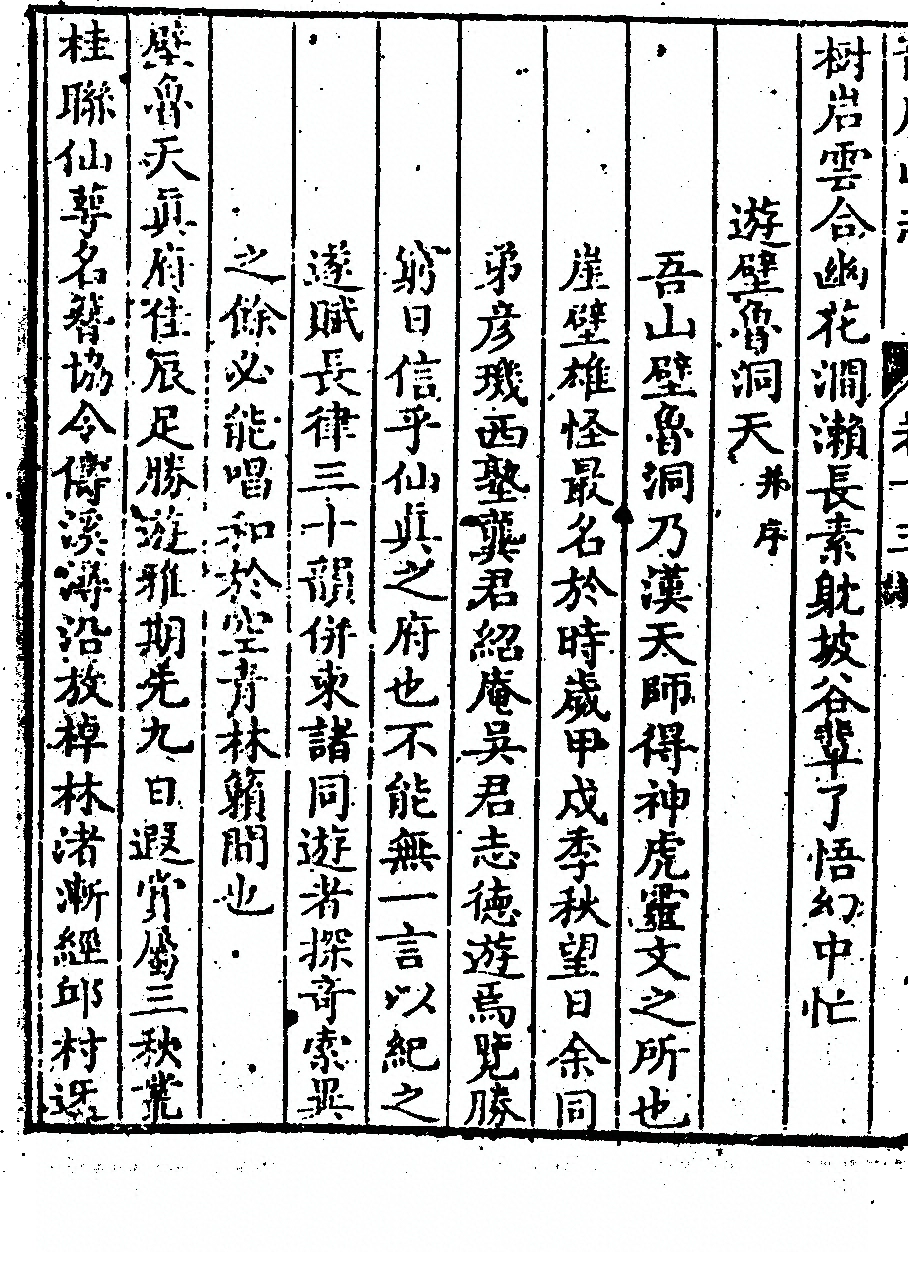 樹岩雲合幽花澗瀨長素耽坡谷輩了悟幻中忙
遊壁魯洞天并序
吾山壁魯洞乃漢天師得神虎靈文之所也
崖壁雄怪最名於時歲甲戌季秋望日余同
弟彦璣西塾龔君紹庵吳君志德遊焉覽勝
窮日信乎仙眞之府也不能無一言以紀之
遂賦長律三十韻併柬諸同遊者探奇索異
之餘必能唱和於空青林籟間也
壁魯天眞府佳辰足勝遊雅期先九日遐賞屬三秋叢
桂聯仙萼名簪協令儔溪潯沿放棹林渚漸經邱村迓